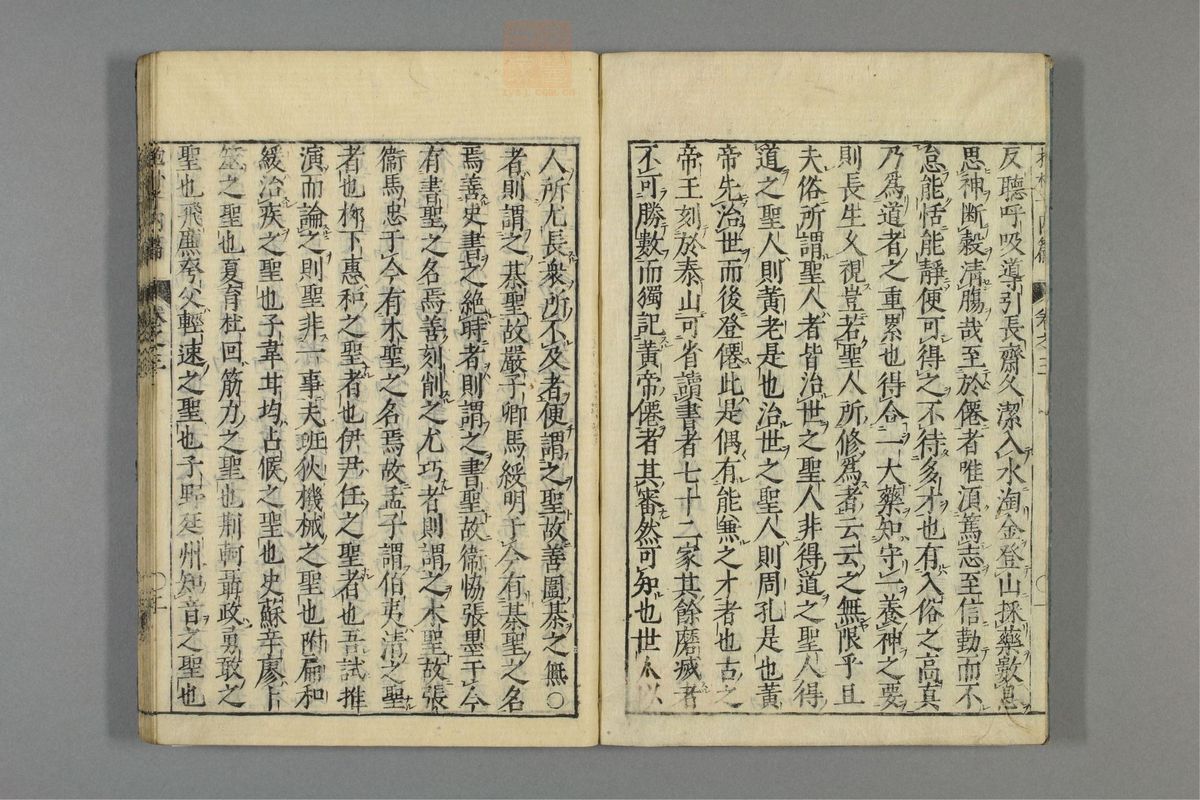 反聽呼吸導引長齋久潔入水淘金登山採藥數息
思神斷穀清腸哉至於僊者唯湏篤志至信勤而不
怠能恬能靜便可得之不待多才也有入俗之高真
乃爲道者之重累也得合一大藥知守一養神之要
則長生久視豈若聖人所修爲者云云之無限乎且
夫俗所謂聖人者皆治世之聖人非得道之聖人得
道之聖人則黃老是也治世之聖人則周孔是也黃
帝先治世而後登僊此是偶有能兼之才者也古之
帝王刻於泰山可省讀書者七十二家其餘磨滅者
不可勝數而獨記黃帝僊者其審然可知也世人以
人所尤長衆所不及者便謂之聖故善圍棊之無
者則謂之棊聖故嚴子卿馬綏明于今有棊聖之名
焉善史書之絶時者則謂之書聖故衞協張墨于今
有書聖之名焉善刻削之尤巧者則謂之木聖故張
衞馬忠于今有木聖之名焉故孟子謂伯夷清之聖
者也桺下惠和之聖者也伊尹任之聖者也吾試推
演而論之則聖非一事夫班狄機械之聖也附扁和
緩治疾之聖也子韋甘均占候之聖也史蘇辛廖卜
筮之聖也夏育杜回筋力之聖也荆軻聶政勇敢之
聖也飛廉夸父輕速之聖也子野延州知音之聖也
卷之三
zysj.com.cn